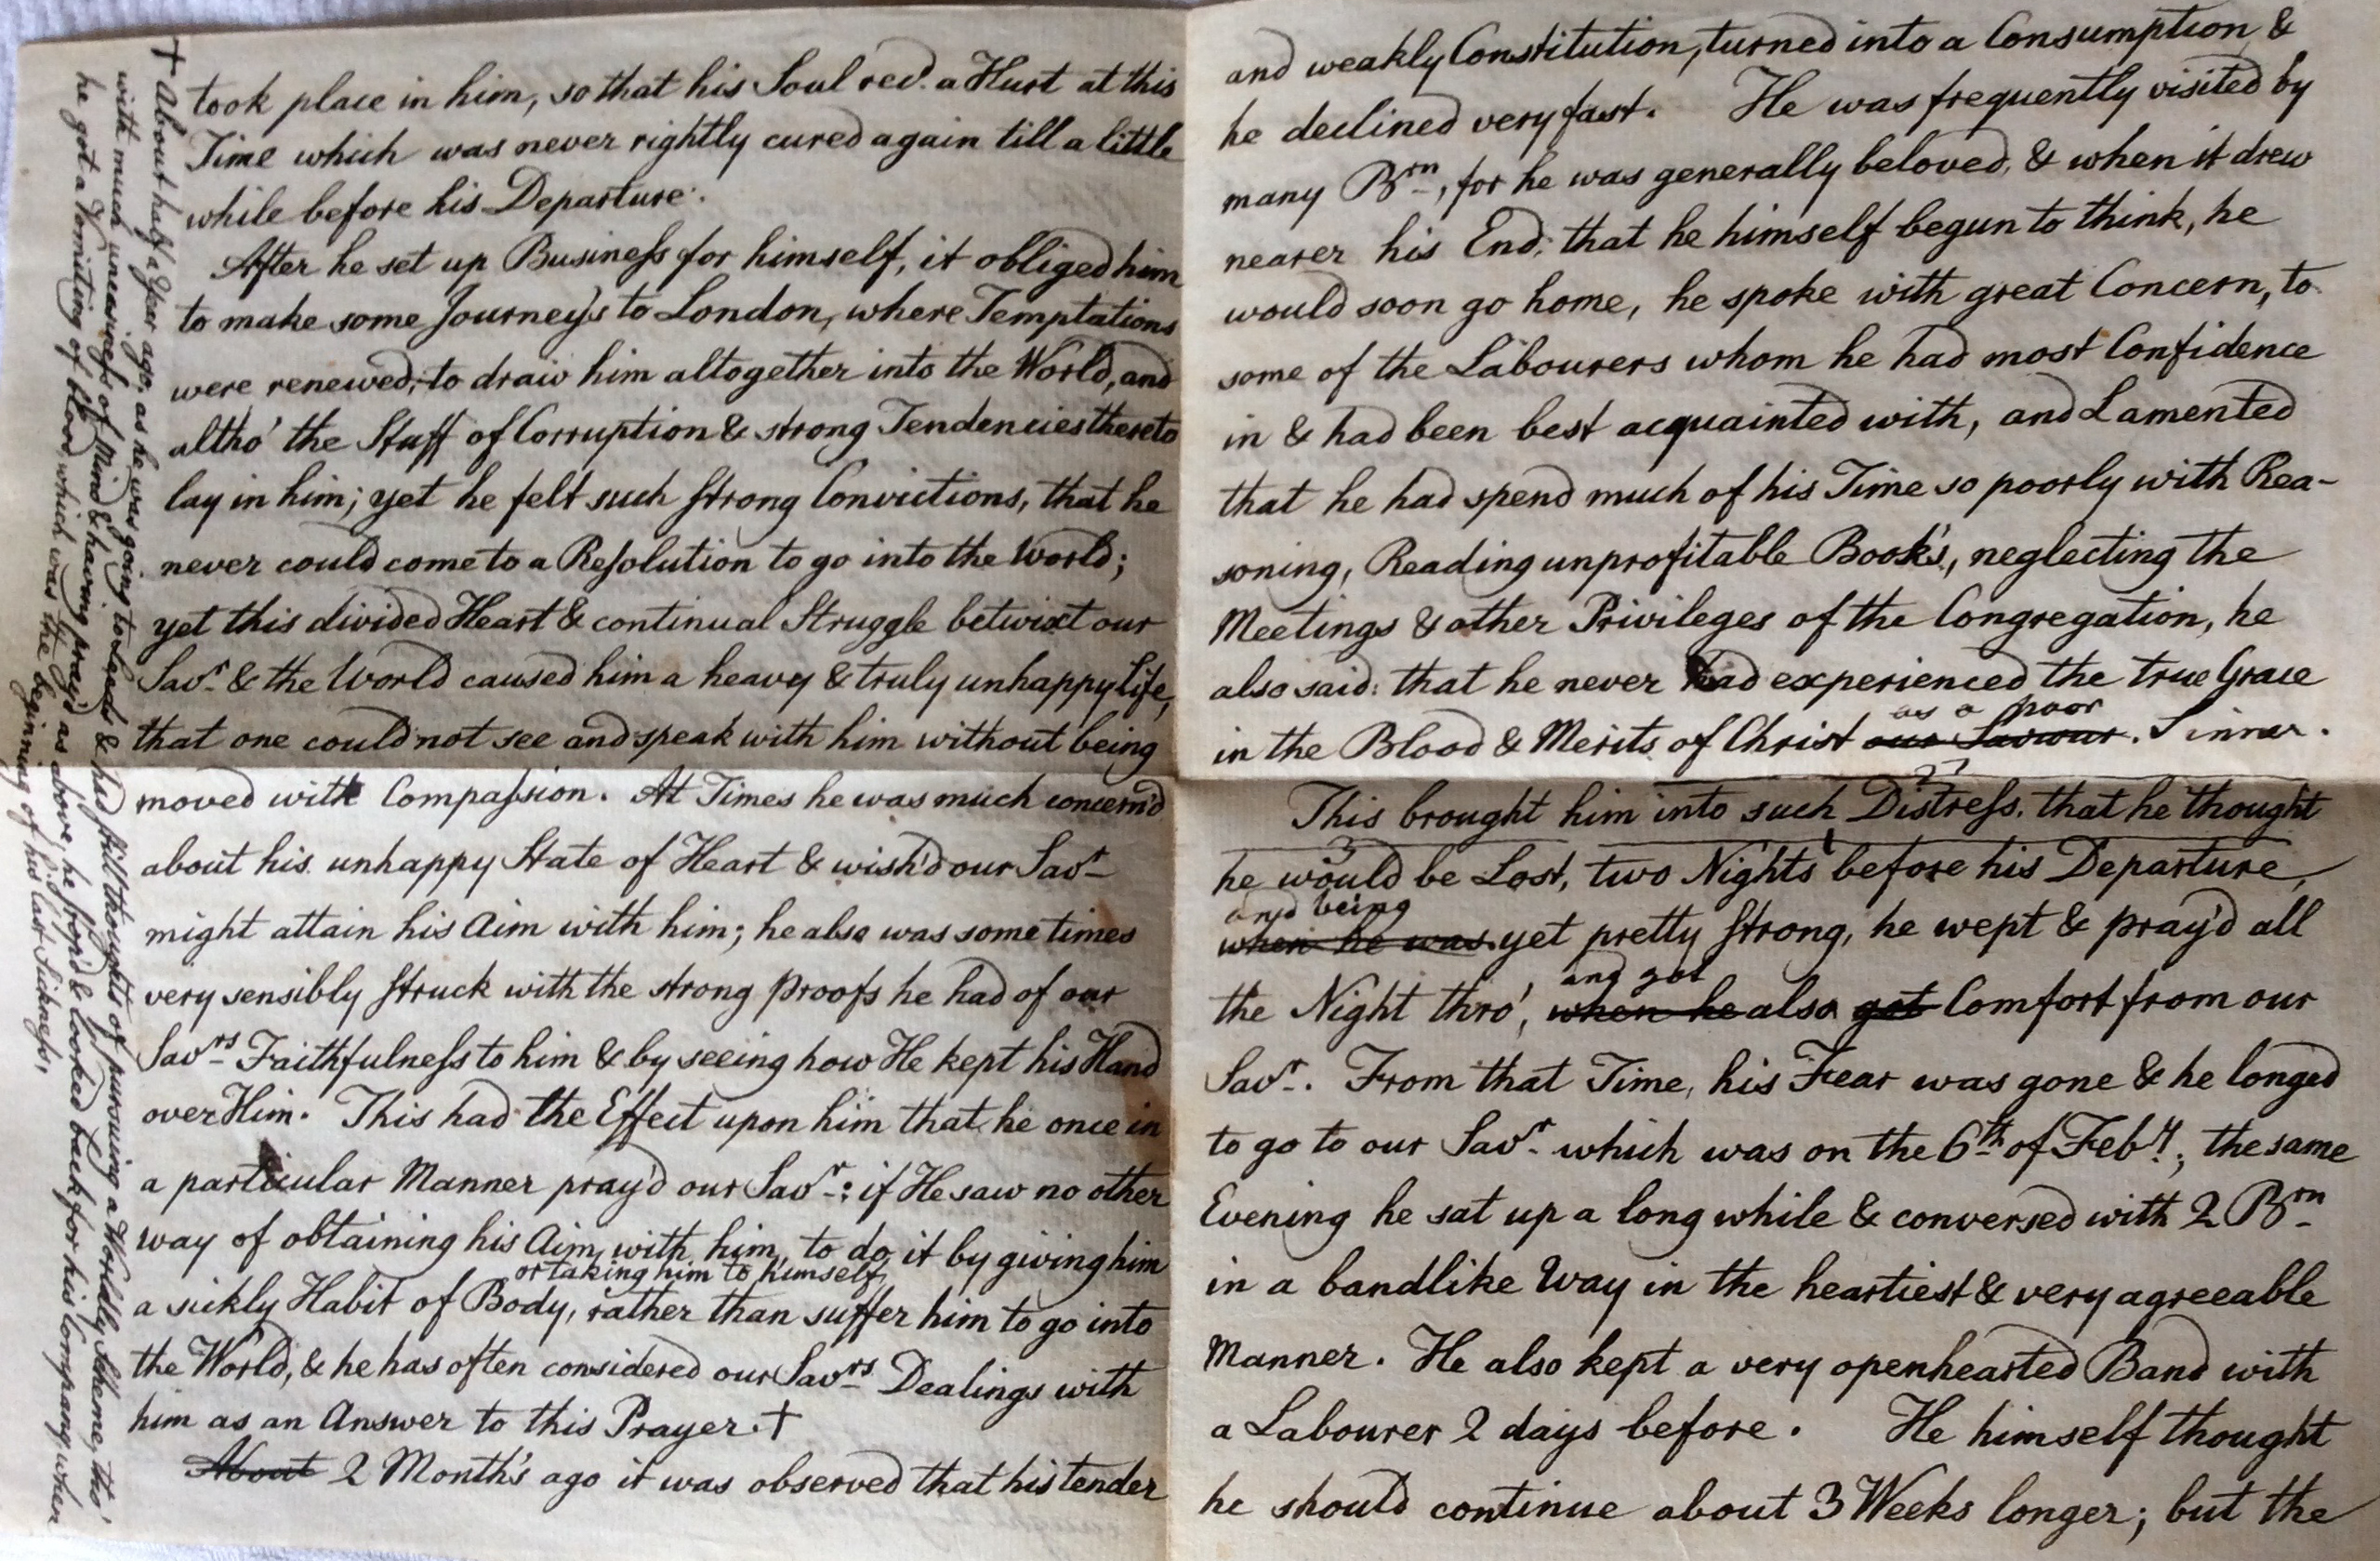 took place in him, so that his Soul recd. a Hurt at this
Time which was never rightly cured again till a little
while before his Departure.
After he set up Businefs for himself, it obliged him
to make some Journey's to London, where Temptations
were renewed, to draw him altogether into the World, and
altho' the Stuff of Corruption & strong Tendencies thereto
lay in him; yet he felt such strong Convictions, that he
never could come to a Resolution to go into the World;
yet this divided Heart & continual Struggle betwixt our
Savr. & the World caused him a heavy & truly unhappy Life,
that one could not see and speak with him without being
moved with Compafsion. At Times he was much concern'd
about his unhappy State of Heart & wish'd our Savr.
might attain his Aim with him; he also was some times
very sensibly struck with the strong Proofs he had of our
Savrs. Faithfulnefs to him & by seeing how He kept his Hand
over Him. This had the Effect upon him that he once in
a particular Manner pray'd our Savr.: if He saw no other
way of obtaining his Aim with him, to do it by giving him
or taking him to himself,
a sickly Habit of Body, rather than suffer him to go into
the World, & he has often considered our Savrs. Dealings with
him as an Answer to this Prayer. +
About 2 Month's ago it was observed that his tender
+ About half a Year ago, as he was going to Leeds & had still thoughts of pursuing a Worldly Scheme, tho'
with much uneasinefs of Mind & having pray'd as above, he stop'd & looked back for his Company, when
he got a Vomiting of blood, which was the beginning of his last Sicknefs,
and weakly Constitution, turned into a Consumption &
he declined very fast. He was frequently visited by
many Brn., for he was generally beloved, & when it drew
nearer his End, that he himself begun to think, he
would soon go home, he spoke with great Concern, to
some of the Labourers whom he had most Confidence
in & had been best acquainted with, and Lamented
that he had spend much of his Time so poorly with Rea-
soning, Reading unprofitable Book's, neglecting the
Meetings & other Privileges of the Congregation, he
also said: that he never had experienced the true Grace
as a poor
in the Blood & Merits of Christ our Saviour. Sinner.
This brought him into such Distrefs, that he thought
he would be Lost, two Nights before his Departure,
and being
when he was yet pretty strong, he wept & pray'd all
and got
the Night thro', when he also got Comfort from our
Savr. From that Time, his Fear was gone & he longed
to go to our Savr. which was on the 6th of Feby., the same
Evening he sat up a long while & conversed with 2 Brn.
in a bandlike Way in the heartiest & very agreeable
Manner. He also kept a very openhearted Band with
a Labourer 2 days before. He himself thought
he should continue about 3 Weeks longer; but the